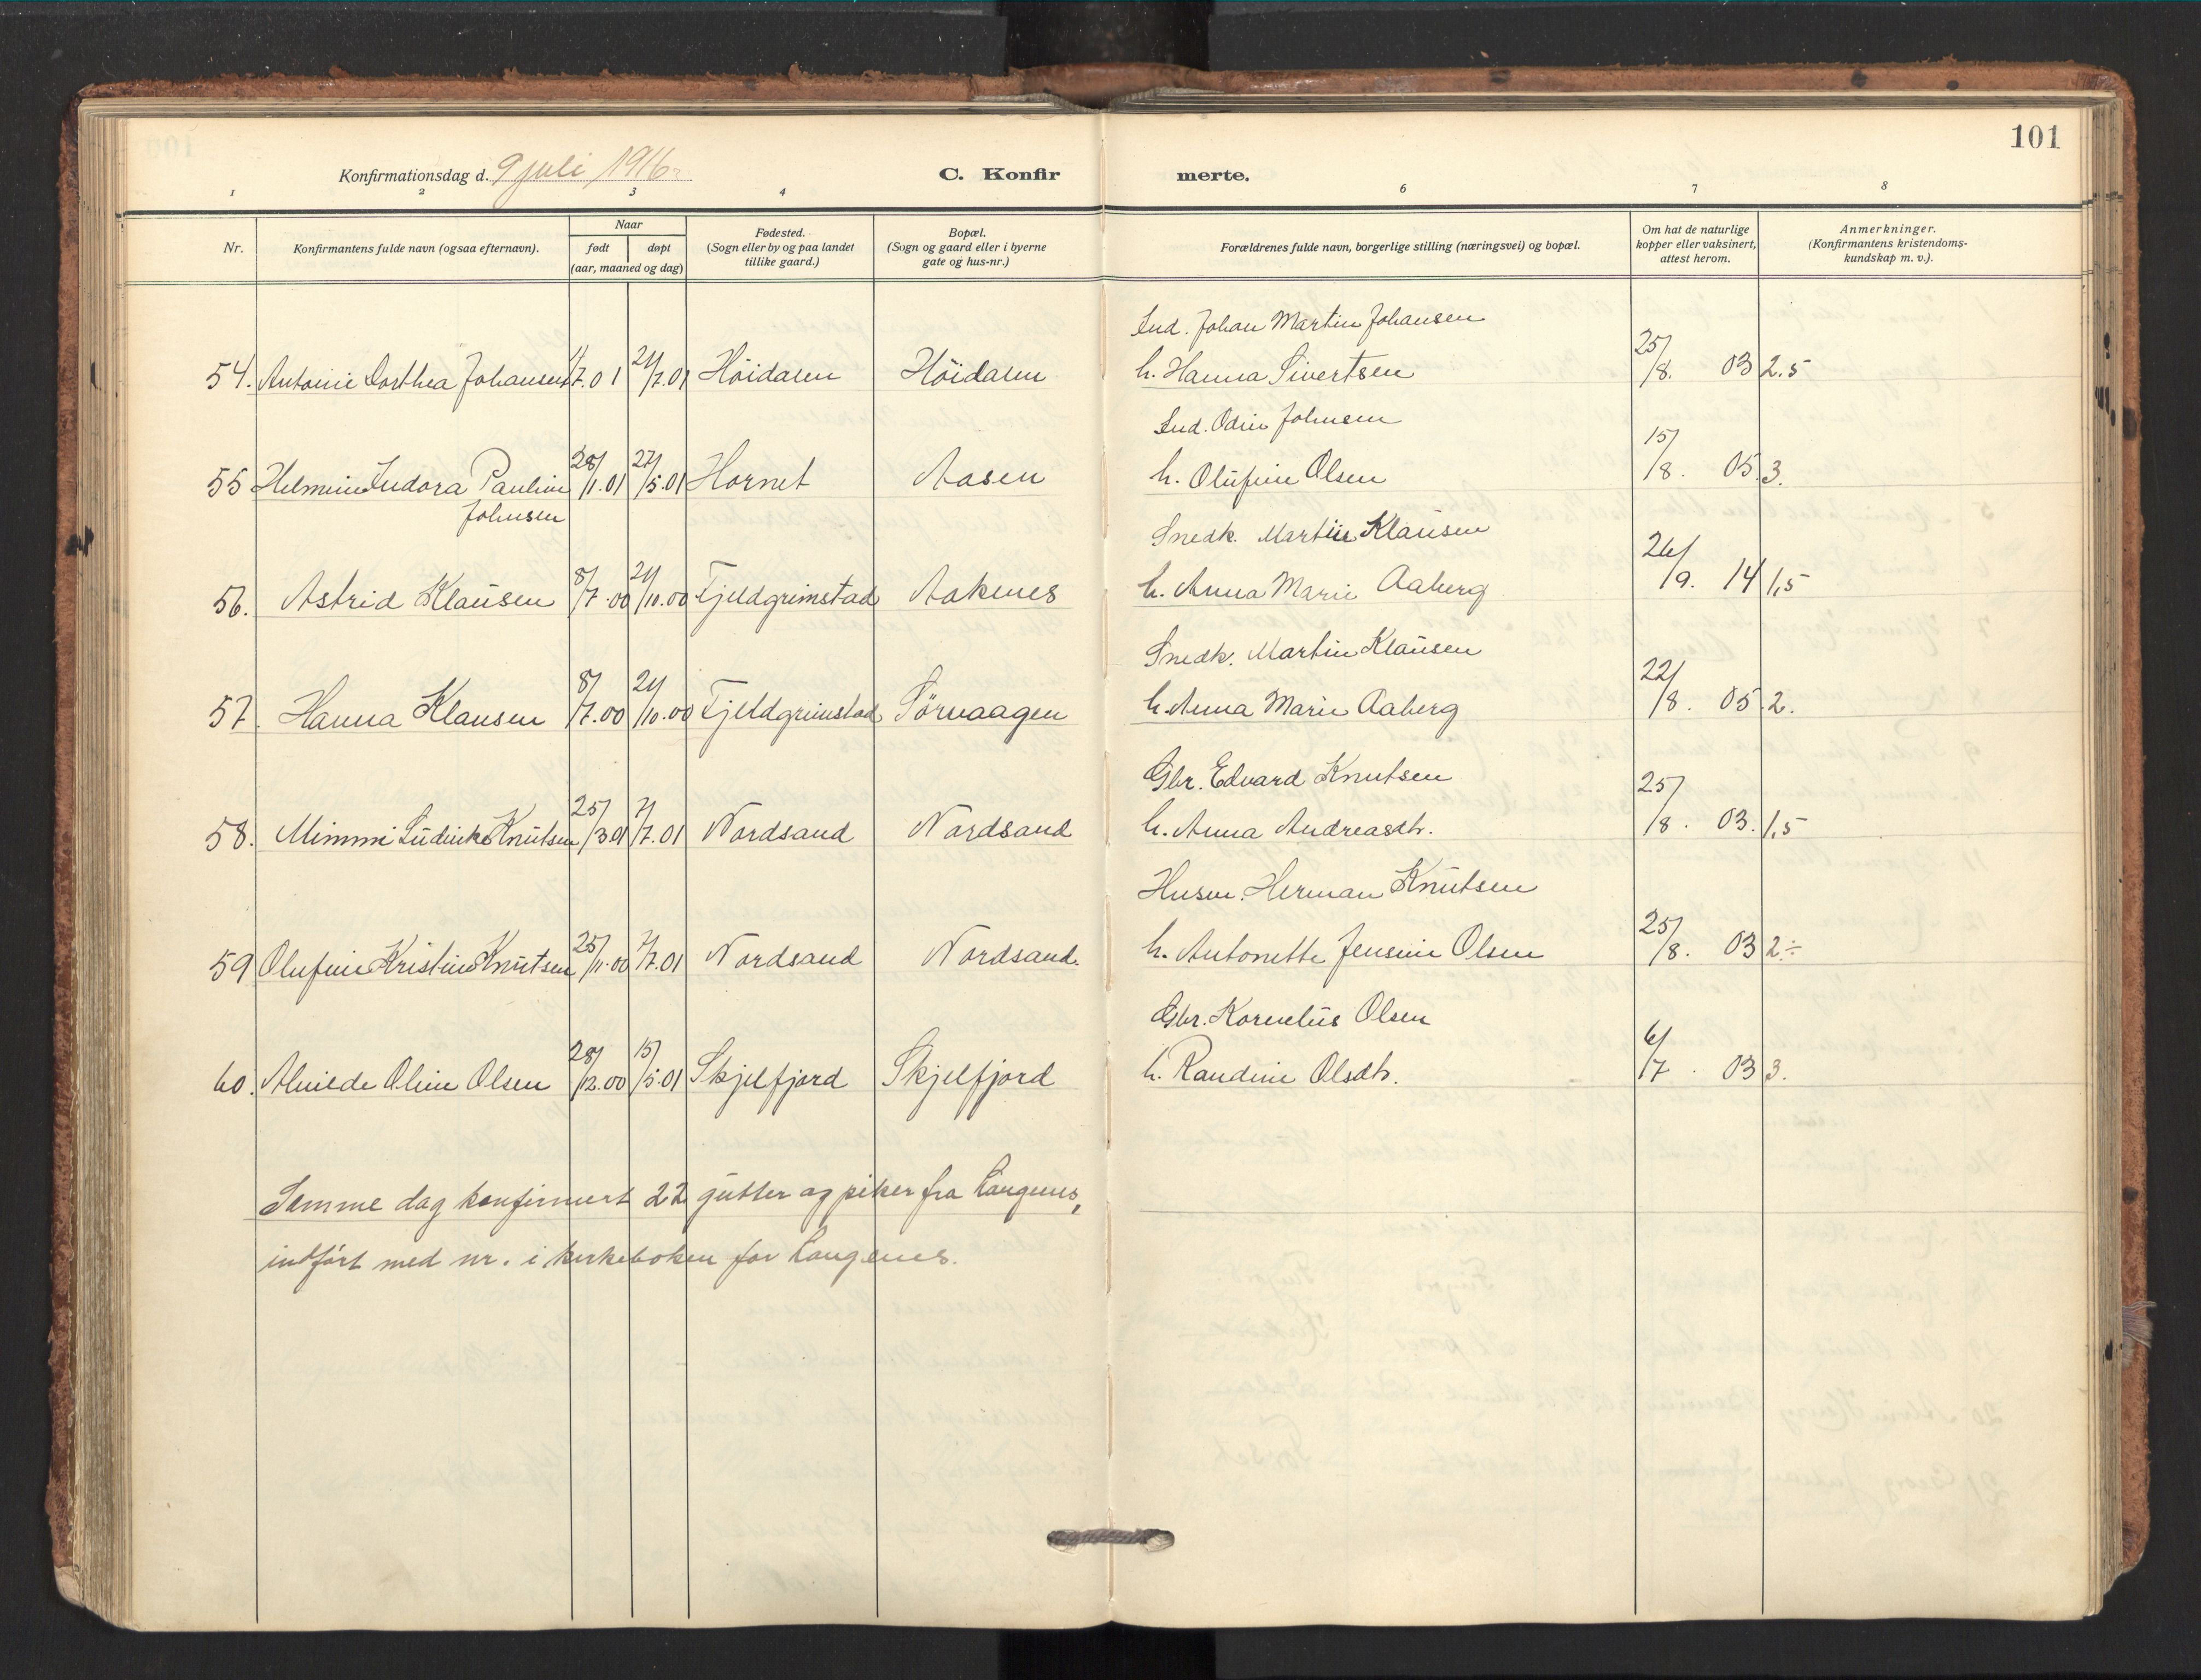 101
Konfirmationsdag d. 9 juli 1916.
C. Konfirmerte.
1 2 3 4 6 7 8
Nr.
Konfirmantens fulde navn (ogsaa efternavn).
Naar
født
døpt
(aar, maaned og dag)
Fødested.
(Sogn eller by og paa landet
tillike gaard.)
Bopæl.
(Sogn og gaard eller i byerne
gate og hus-nr.)
Forældrenes fulde navn, borgerlige stilling (næringsvei) og bopæl.
Om hat de naturlige
kopper eller vaksinert,
attest herom.
Anmerkninger.
(Konfirmantens kristendoms-
kundskap m. v.).
Ind. Johan Martin Johansen
54. Antonie Dorthea Johansen 1/7.01 21/7.01 Höidalen Höidalen h. Hanna Sivertsen 25/8. 03 2.5
Ind. Odin Johnsen
55 Helmine Indora Pauline 28/1.01 27/5.01 Hornet Aasen h. Olufine Olsen 15/8. 05 3.
Johnsen
Snedk. Martin Klausen
56. Astrid Klausen 8/7.00 21/10.00 Fjeldgrimstad Aakenes h. Anna Marie Aaberg 26/9. 14 1,5
Snedk. Martin Klausen
57. Hanna Klausen 8/7.00 21/10.00 Fjeldgrimstad Sörvaagen h. Anna Marie Aaberg 22/8. 05 2.
Gbr. Edvard Knutsen
58. Mimmi Ludvikke Knutsen 25/3.01 7/7.01 Nordsand Nordsand h. Anna Andreasdtr. 25/8. 03. 1,5
Husm. Herman Knutsen
59 Olufine Kristine Knutsen 25/11.00 7/7.01 Nordsand Nordsand. h. Antonette Jensine Olsen 25/8. 03 2÷
Gbr. Kornelius Olsen
60. Alvilde Oline Olsen 28/12.00 15/5.01 Skjelfjord Skjelfjord h. Randine Olsdtr. 6/7. 03 3.
Samme dag konfirmert 22 gutter og piker fra Langenes,
indført med nr. i kirkeboken for Langenes.